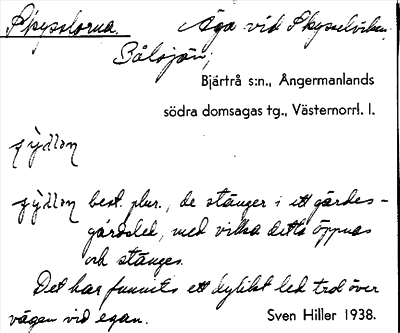 Skysslorna. Äga vid Skysselviken,
Bålsjön,
Bjärtrå s:n., Ångermanlands
södra domsagas tg., Västernorrl. l.
best. plur., de stänger i ett gärdes-
gårdsled, med vilka detta öppnas
och stänges.
Det har funnits ett dylikt led tvärs över
vägen vid egan.
Sven Hiller 1938.